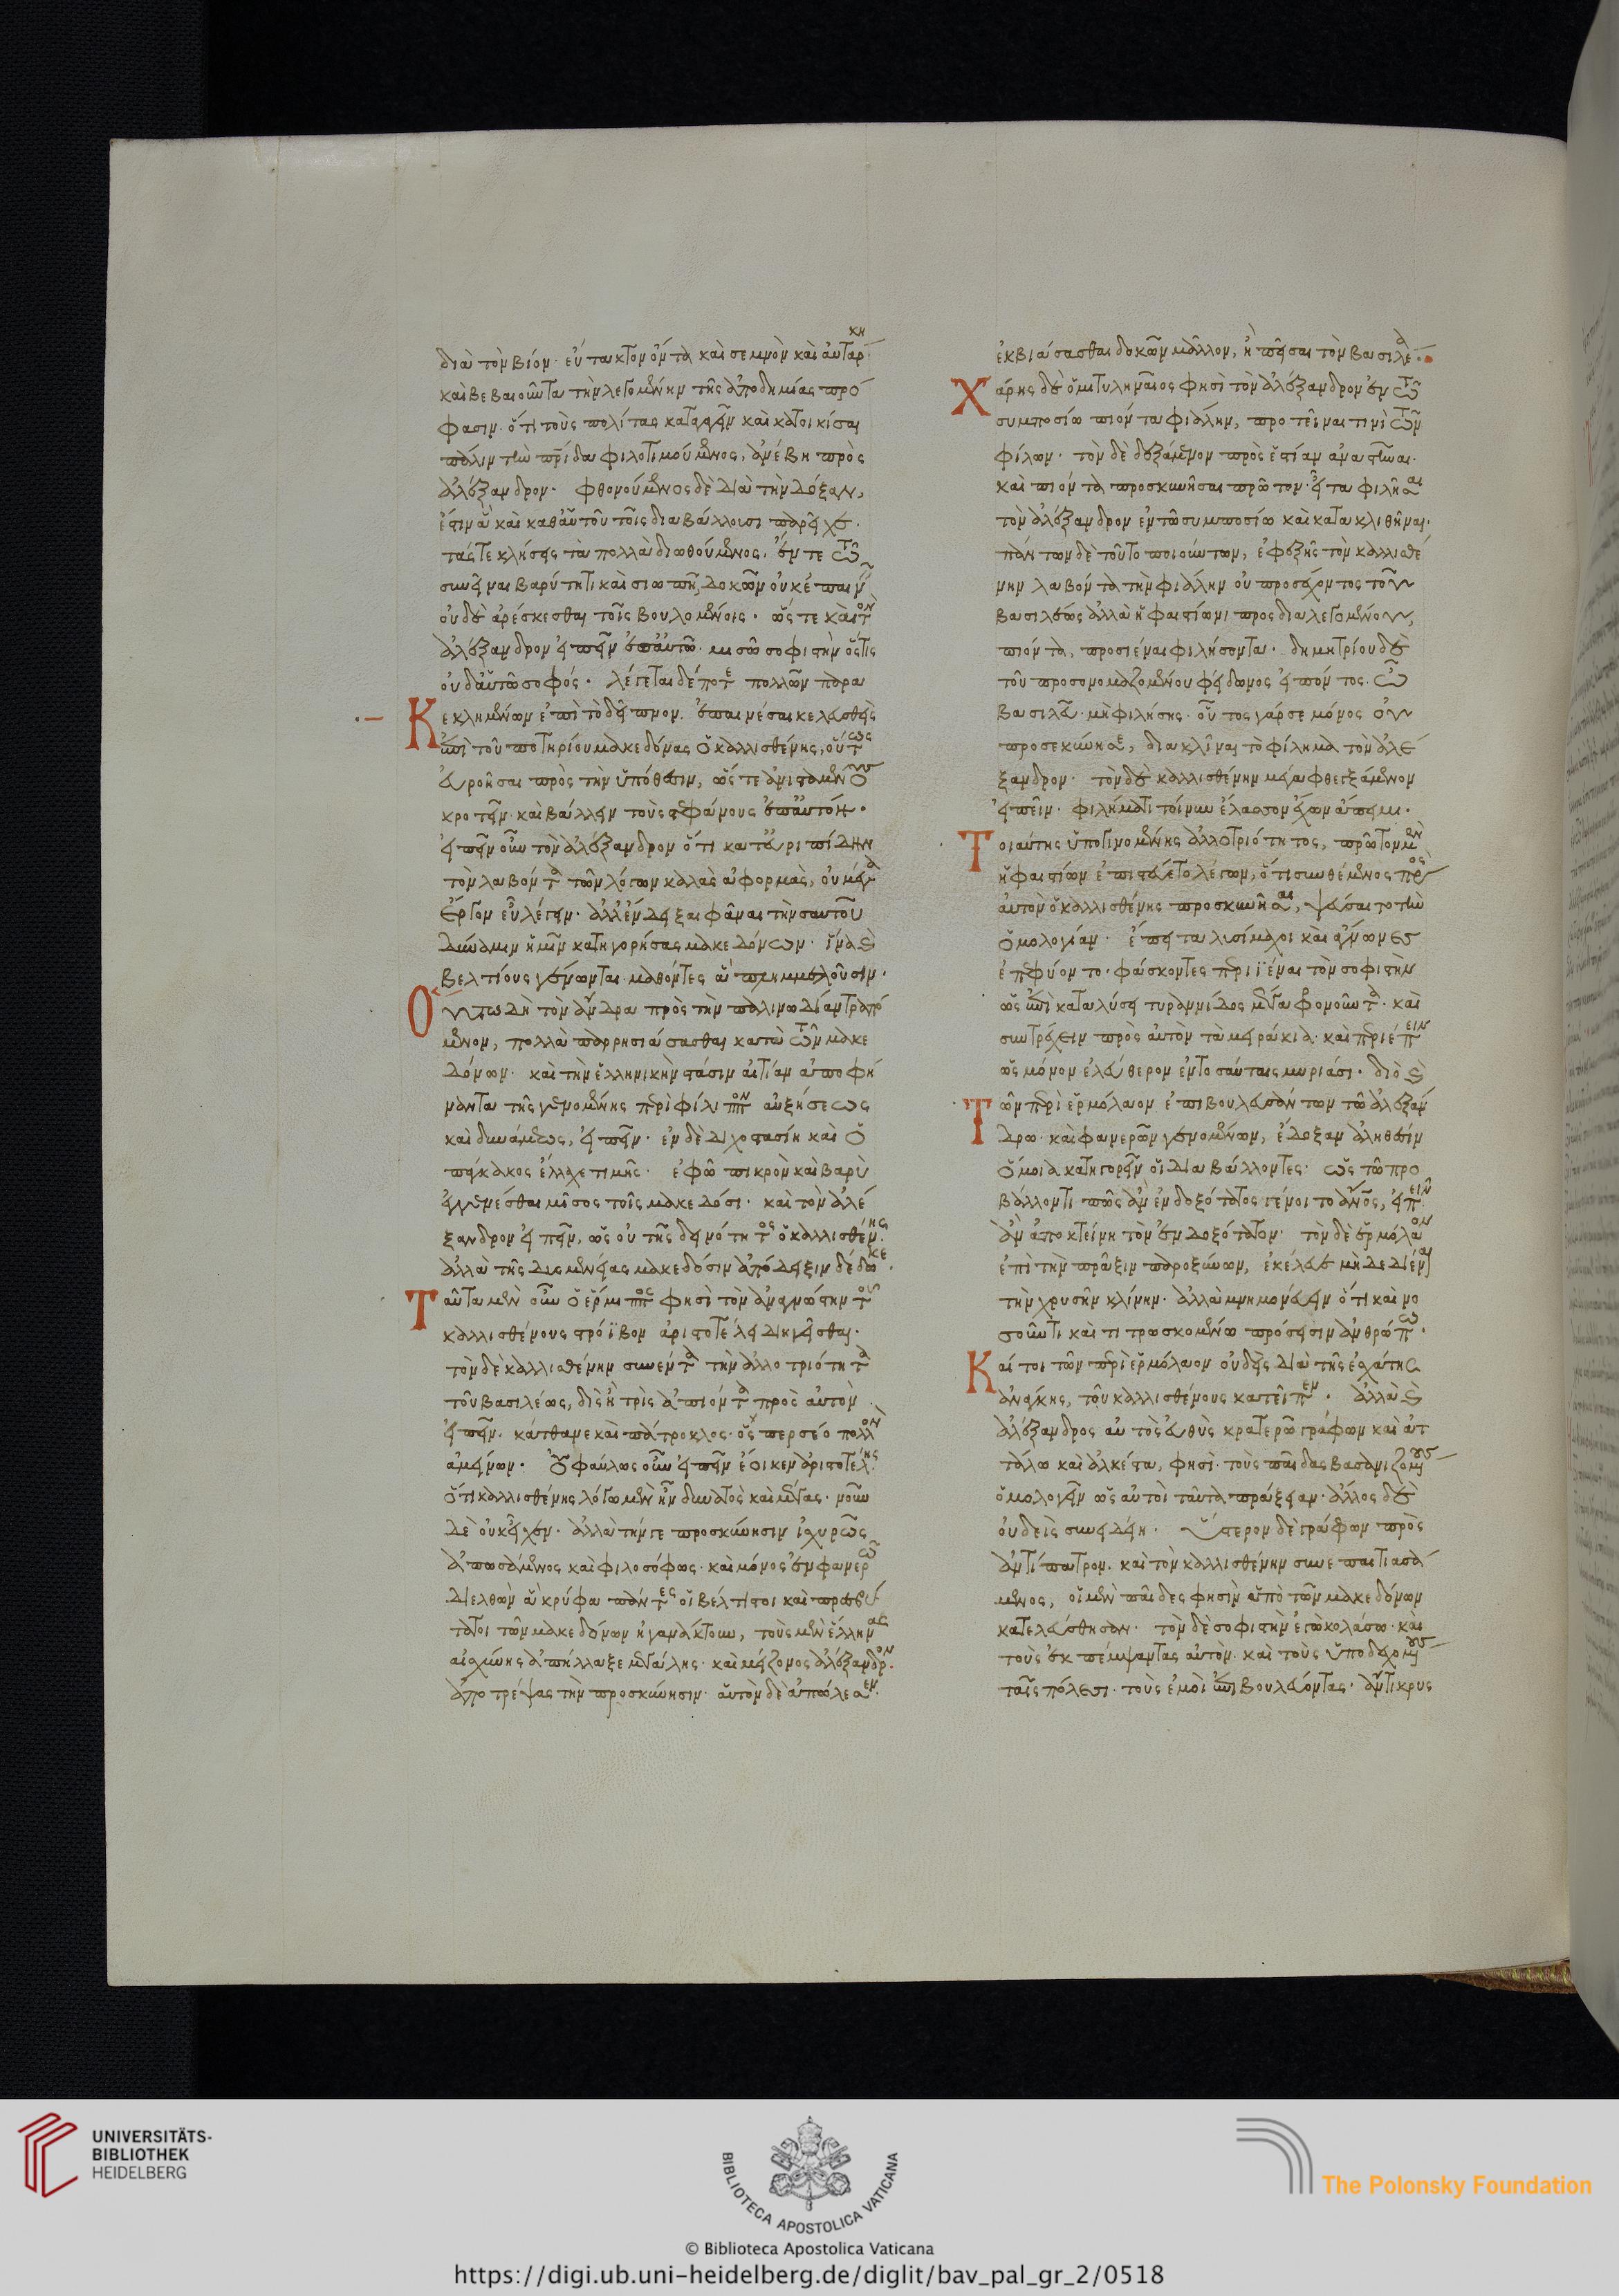 διὰ τὸν βίον· εὔτακτον ὄντα καὶ σεμνὸν καὶ αὐτάρκη
καὶ βεβαιοῦντα τὴν λεγομένην τῆς ἀποδημίας πρό
φασιν· ὅτι τοὺς πολίτας καταγαγεῖν καὶ κατοικίσαι
πάλιν τὴν πρίδα φιλοτιμούμενος, ἀνέβη πρὸς
ἀλέξανδρον· φθονούμενος δὲ διὰ τὴν δόξαν,
ἔστιν ἃ καὶ καθ' αὑτοῦ τοῖς διαβάλλουσι παρεῖχε·
τάς τε κλήσεις τὰ πολλὰ διωθούμενος, ἔν τε τῷ
συνεῖναι βαρύτητι καὶ σιωπῇ, δοκῶν οὐκ ἐπαινεῖν
οὐδὲ ἀρέσκεσθαι τοῖς βουλομένοις· ὥστε καὶ τὸν
ἀλέξανδρον εἰπεῖν ἐπ' αὐτῷ· μισῶ σοφιστὴν ὅστις
οὐδ' αὑτῷ σοφός· λέγεται δέ ποτε πολλῶν παρα
Κεκλημένων ἐπὶ τὸ δεῖπνον· ἐπαινέσαι κελευσθεὶς
ἐπὶ τοῦ ποτηρίου μακεδόνας ὁ καλλισθένης, οὕτως
εὐροῆσαι πρὸς τὴν ὑπόθεσιν, ὥστε ἀνισταμένους
κροτεῖν· καὶ βάλλειν τοὺς στεφάνους ἐπ' αὐτόν·
εἰπεῖν οὖν τὸν ἀλέξανδρον ὅτι κατ' εὐριπίδην
τὸν λαβόντα τῶν λόγων καλὰς ἀφορμὰς, οὐ μέγα
ἔργον εὖ λέγειν· ἀλλ' ἔνδειξαι φάναι τὴν σαυτοῦ
δύναμιν ἡμῖν κατηγορήσας μακεδόνων· ἵνα καὶ
βελτίους γένωνται μαθόντες ἃ πλημμελοῦσιν·
Οὕτω δὴ τὸν ἄνδρα πρὸς τὴν παλινωδίαν τραπό
μενον, πολλὰ παρρησιάσασθαι κατὰ τῶν μακε
δόνων· καὶ τὴν ἑλληνικὴν στάσιν αἰτίαν ἀποφή
ναντα τῆς γενομένης περὶ φίλιππον αὐξήσεως
καὶ δυνάμεως, εἰπεῖν· ἐν δὲ διχοστασίῃ καὶ ὁ
πάγκακος ἔλλαχε τιμῆς· ἐφ' ᾧ πικρὸν καὶ βαρὺ
ἐγγενέσθαι μῖσος τοῖς μακεδόσι· καὶ τὸν ἀλέ
ξανδρον εἰπεῖν, ὡς οὐ τῆς δεινότητος ὁ καλλισθένης·
ἀλλὰ τῆς δυσμενείας μακεδόσιν ἀπόδειξιν δέδωκε·
Ταῦτα μὲν οὖν ὁ ἕρμιππος φησὶ τὸν ἀναγνώστην τοῦ
καλλισθένους στρόϊβον ἀριστοτέλει διηγεῖσθαι·
τὸν δὲ καλλισθένην συνέντα τὴν ἀλλοτριότητα
τοῦ βασιλέως, δὶς ἢ τρὶς ἀπιόντα πρὸς αὐτὸν
εἰπεῖν· κάτθανε καὶ πάτροκλος· ὅς περ σέο πολλὸν
ἀμείνων· Οὐ φαύλως οὖν εἰπεῖν ἔοικεν ἀριστοτέλης
ὅτι καλλισθένης λόγῳ μὲν ἦν δυνατὸς καὶ μέγας· νοῦν
δὲ οὐκ εἶχεν· ἀλλὰ τήν γε προσκύνησιν ἰσχυρῶς
ἀπωσάμενος καὶ φιλοσόφως· καὶ μόνος ἐν φανερῷ
διελθὼν ἃ κρύφα πάντες οἱ βέλτιστοι καὶ πρεσβύ
τατοι τῶν μακεδόνων ἠγανάκτουν, τοὺς μὲν ἕλληνας
αἰσχύνης ἀπήλλαξε μεγάλης· καὶ μείζονος ἀλέξανδρον·
ἀποτρέψας τὴν προσκύνησιν· αὑτὸν δὲ ἀπώλεσεν·
ἐκβιάσασθαι δοκῶν μᾶλλον, ἢ πεῖσαι τὸν βασιλέα·
Χάρης δὲ ὁ μιτυληναῖος φησὶ τὸν ἀλέξανδρον ἐν τῷ
συμποσίῳ πιόντα φιάλην, προτεῖναί τινι τῶν
φίλων· τὸν δὲ δεξάμενον πρὸς ἑστίαν ἀναστῆναι·
καὶ πιόντα προσκυνῆσαι πρῶτον· εἶτα φιλῆσαι
τὸν ἀλέξανδρον ἐν τῷ συμποσίῳ καὶ κατακλιθῆναι·
πάντων δὲ τοῦτο ποιούντων, ἐφεξῆς τὸν καλλισθέ
νην λαβόντα τὴν φιάλην οὐ προσέχοντος τοῦ
βασιλέως ἀλλὰ ἡφαιστίωνι προσδιαλεγομένου,
πιόντα, προσιέναι φιλήσοντα· δημητρίου δὲ
τοῦ προσονομαζομένου φείδωνος εἰπόντος· ὦ
βασιλεῦ· μὴ φιλήσῃς· οὗτος γάρ σε μόνος οὐ
προσεκύνησε, διακλῖναι τὸ φίλημα τὸν ἀλέ
ξανδρον· τὸν δὲ καλλισθένην μέγα φθεγξάμενον
εἰπεῖν· φιλήματι τοίνυν ἔλασσον ἔχων ἄπειμι·
Τοιαύτης ὑπογινομένης ἀλλοτριότητος, πρῶτον μὲν
ἡφαιστίων ἐπιστεύετο λέγων, ὅτι συνθέμενος πρὸς
αὐτὸν ὁ καλλισθένης προσκυνῆσαι, ψεύσαιτο τὴν
ὁμολογίαν· ἔπειτα λυσίμαχοι καὶ ἅγνωνες
ἐπεφύοντο· φάσκοντες περιϊέναι τὸν σοφιστὴν
ὡς ἐπὶ καταλύσει τυραννίδος μέγα φρονοῦντα· καὶ
συντρέχειν πρὸς αὐτὸν τὰ μειράκια· καὶ περιέπειν
ὡς μόνον ἐλεύθερον ἐν τοσαύταις μυριάσι· διὸ καὶ
Τῶν περὶ ἑρμόλαον ἐπιβουλευσάντων τῷ ἀλεξάν
δρῳ· καὶ φανερῶν γενομένων, ἔδοξαν ἀληθέσιν
ὅμοια κατηγορεῖν οἱ διαβάλλοντες· ὡς τῷ προ
βάλλοντι πῶς ἂν ἐνδοξότατος γένοιτο ἄνος, εἰπεῖν
ἂν ἀποκτείνῃ τὸν ἐνδοξότατον· τὸν δὲ ἑρμόλαον
ἐπὶ τὴν πρᾶξιν παροξύνων, ἐκέλευε μὴ δεδιέναι
τὴν χρυσῆν κλίνην· ἀλλὰ μνημονεύειν ὅτι καὶ νο
σοῦντι καὶ τιτρωσκομένῳ πρόσεισιν ἀνθρώπῳ·
Καίτοι τῶν περὶ ἑρμόλαον οὐδεὶς διὰ τῆς ἐσχάτης
ἀνάγκης, τοῦ καλλισθένους κατεῖπεν· ἀλλὰ καὶ
ἀλέξανδρος αὐτὸς εὐθὺς κρατερῷ γράφων καὶ ἀτ
τάλῳ καὶ ἀλκέτᾳ, φησὶ τοὺς παῖδας βασανιζομένους
ὁμολογεῖν ὡς αὐτοὶ ταῦτα πράξειαν· ἄλλος δὲ
οὐδεὶς συνειδείη· Ὕστερον δὲ γράφων πρὸς
ἀντίπατρον· καὶ τὸν καλλισθένην συνεπαιτιασά
μενος, οἱ μὲν παῖδες φησὶν ὑπὸ τῶν μακεδόνων
κατελεύσθησαν· τὸν δὲ σοφιστὴν ἐγὼ κολάσω· καὶ
τοὺς ἐκπέμψαντας αὐτὸν· καὶ τοὺς ὑποδεχομένους
ταῖς πόλεσι· τοὺς ἐμοὶ ἐπιβουλεύοντας· ἄντικρυς
UNIVERSITÄTS-
BIBLIOTHEK
HEIDELBERG
BIBLIOTECA APOSTOLICA VATICANA
The Polonsky Foundation
© Biblioteca Apostolica Vaticana
https://digi.ub.uni-heidelberg.de/diglit/bav_pal_gr_2/0518